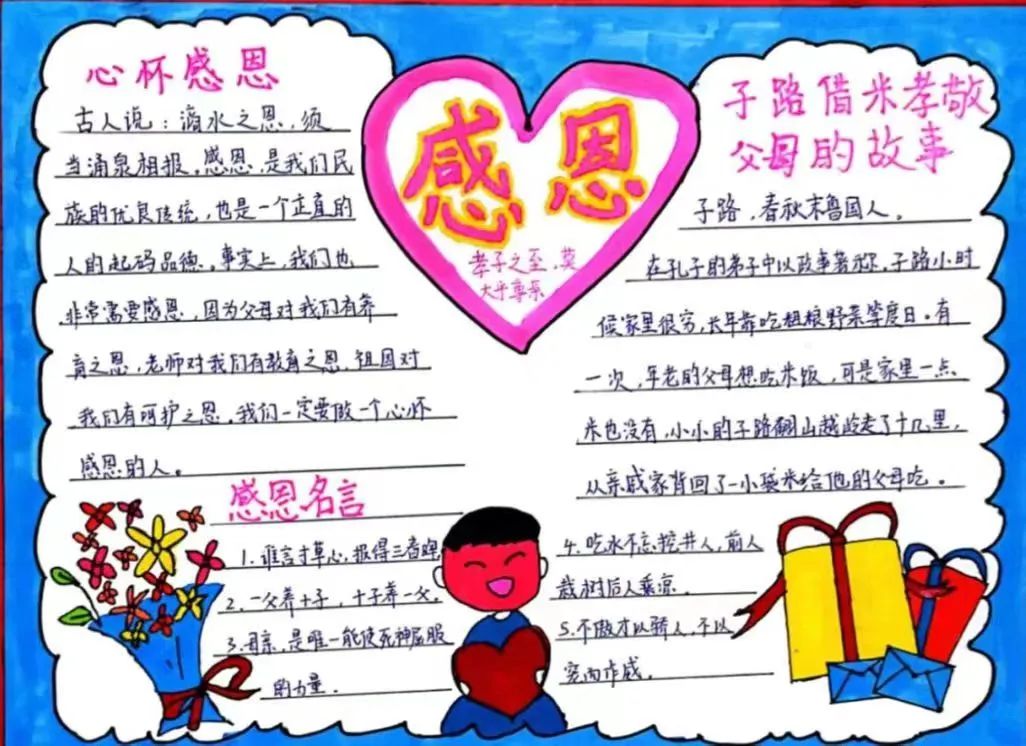 心怀感恩
古人说：滴水之恩，须
当涌泉相报。感恩，是我们民
族的优良传统，也是一个正直的
人的起码品德。事实上，我们也
非常需要感恩，因为父母对我们有养
育之恩，老师对我们有教育之恩，祖国对
我们有呵护之恩。我们一定要做一个心怀
感恩的人。
感恩
孝子之至，莫
大乎尊亲
子路借米孝敬
父母的故事
子路，春秋末鲁国人。
在孔子的弟子中以政事著称。子路小时
候家里很穷，长年靠吃粗粮野菜等度日。有
一次，年老的父母想吃米饭，可是家里一点
米也没有，小小的子路翻山越岭走了十几里，
从亲戚家背回了一小袋米给他的父母吃。
感恩名言
1. 谁言寸草心，报得三春晖
2. 一父养十子，十子养一父。
3. 母亲，是唯一能使死神屈服
的力量。
4. 吃水不忘挖井人，前人
栽树后人乘凉。
5. 不傲才以骄人，不以
宠而作威。